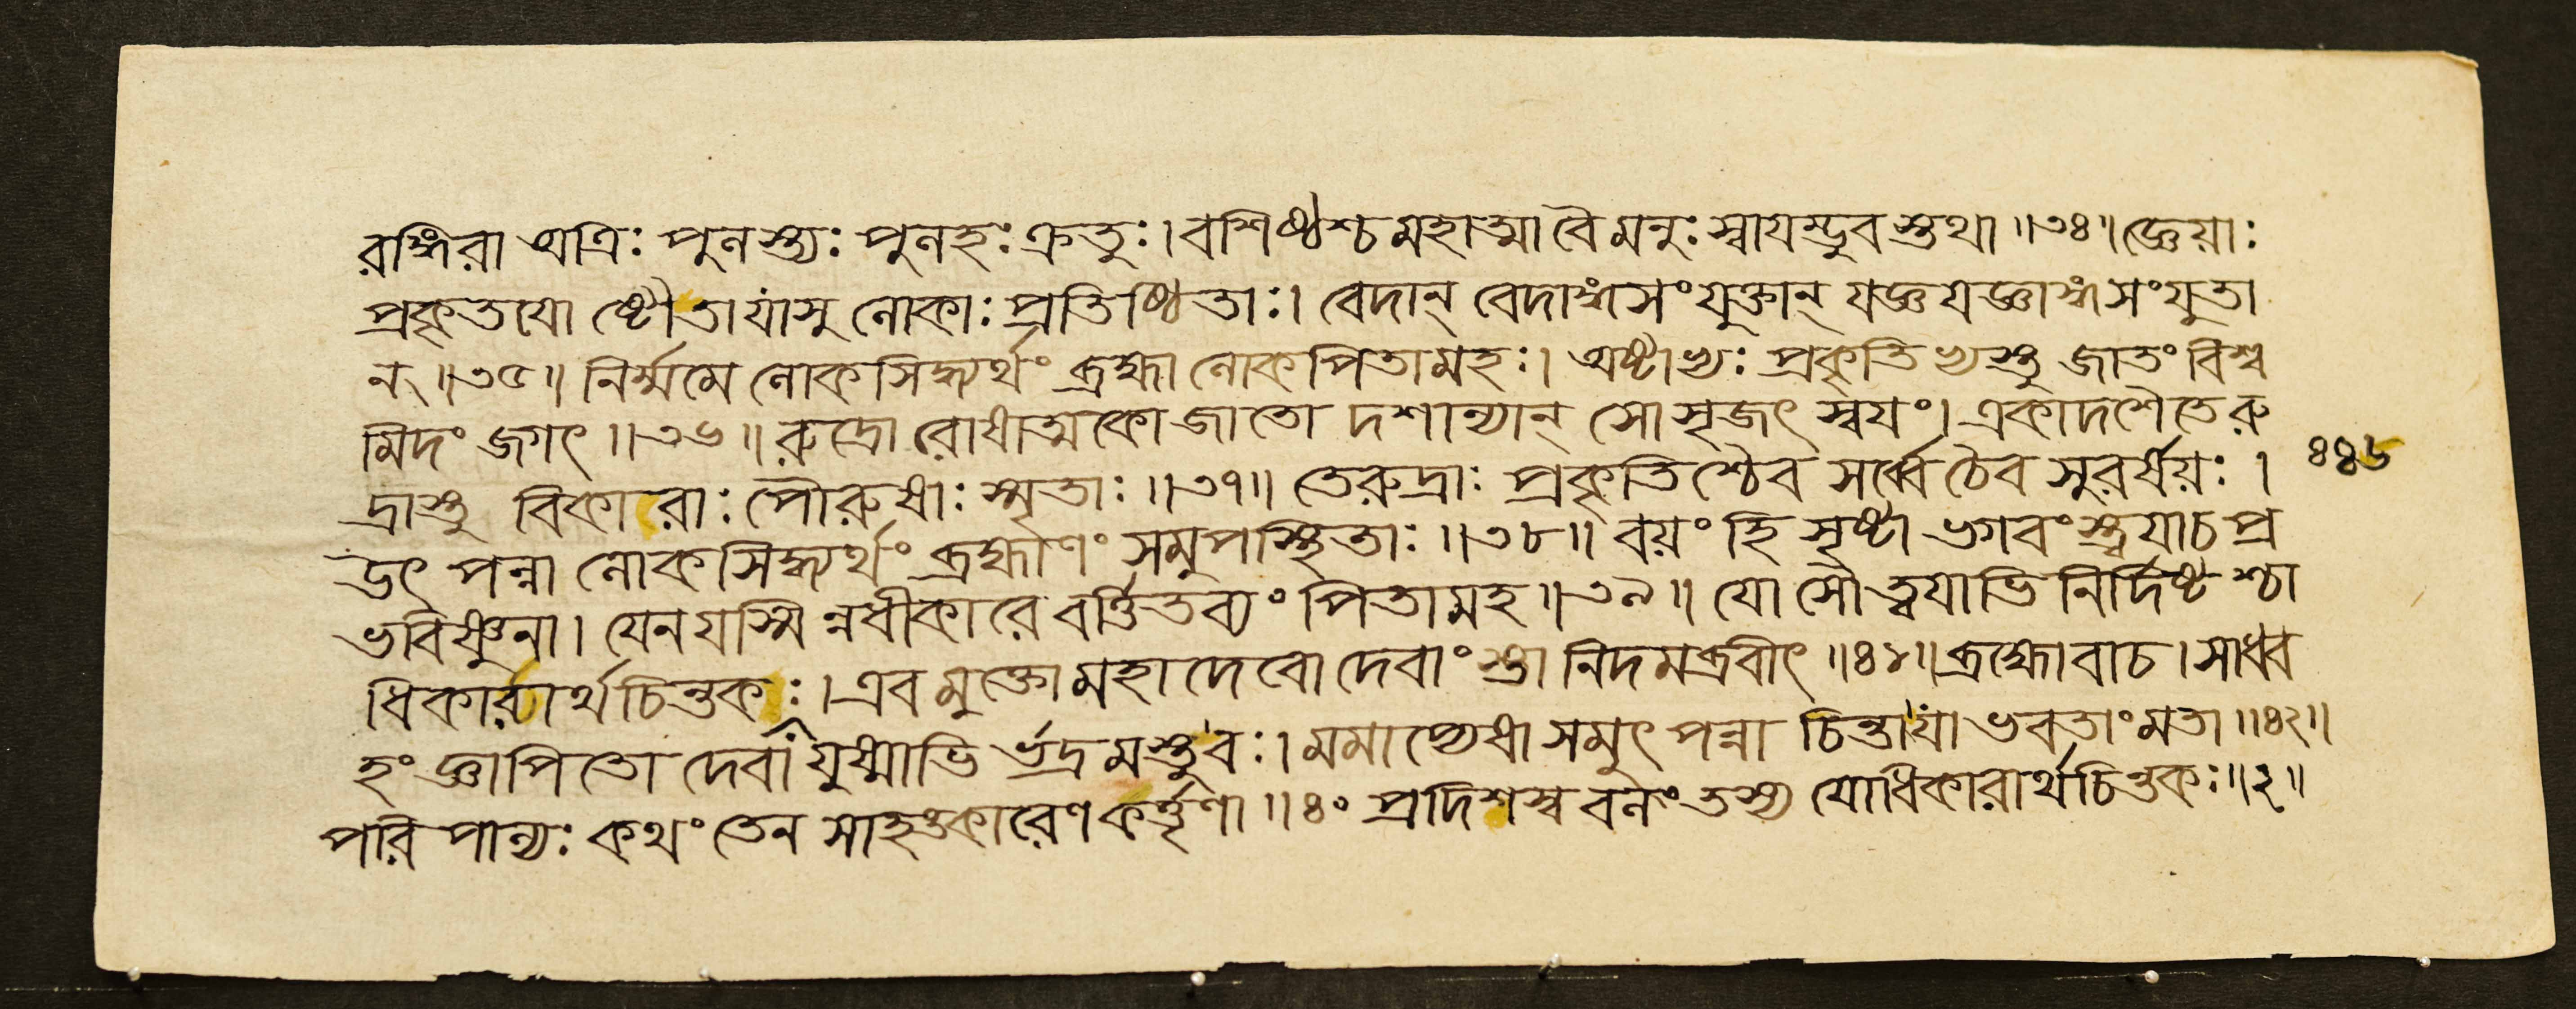 রঙ্গিরা অত্রিঃ পুলস্ত্যঃ পুলহঃ ক্রতুঃ। বশিষ্ঠশ্চ মহাত্মা বৈ মনুঃ স্বাযম্ভুবস্তথা ॥৩৪॥ জ্ঞেয়াঃ
প্রকৃতযো ষ্টৌ তা যাসু লোকাঃ প্রতিষ্ঠিতাঃ। বেদান্ বেদাঙ্গসংযুক্তান্ যজ্ঞযজ্ঞাঙ্গসংযুতা
ন্ ॥৩৫॥ নির্ম্মমে লোকসিদ্ধ্যর্থং ব্রহ্মা লোকপিতামহঃ। অষ্টাভ্যঃ প্রকৃতিভ্যস্তু জাতং বিশ্ব
মিদং জগৎ ॥৩৬॥ রুদ্রো রোষাত্মকো জাতো দশান্যান্ সো সৃজৎ স্বযং। একাদশৈতে রু
দ্রাস্তু বিকারাঃ পৌরুষাঃ স্মৃতাঃ ॥৩৭॥ তে রুদ্রাঃ প্রকৃতিশ্চৈব সর্ব্বে চৈব সুরর্ষয়ঃ। ৪৪৬
উৎপন্না লোকসিদ্ধ্যর্থং ব্রহ্মাণং সমুপস্থিতাঃ ॥৩৮॥ বয়ং হি সৃষ্টা ভগবংস্ত্বযা চ প্র
ভবিষ্ণুনা। যেন যস্মিন্নধীকারে বর্ত্তিতব্যং পিতামহ ॥৩৯॥ যো সৌ ত্বযাভিনির্দিষ্টশ্চা
ধিকারার্থচিন্তকঃ। এবমুক্তো মহাদেবো দেবাংস্তানিদমব্রবীৎ ॥৪১॥ ব্রহ্মোবাচ। সাধ্ব
হং জ্ঞাপিতো দেবা যুষ্মাভির্ভদ্রমস্তু বঃ। মমাপ্যেষা সমুৎপন্না চিন্তা যা ভবতাং মতা ॥৪২॥
পরিপাল্যঃ কথং তেন সাহঙ্কারেণ কর্ত্তৃণা ॥৪০ প্রদিশস্ব বলং তস্য যোধিকারার্থচিন্তকঃ ॥২॥